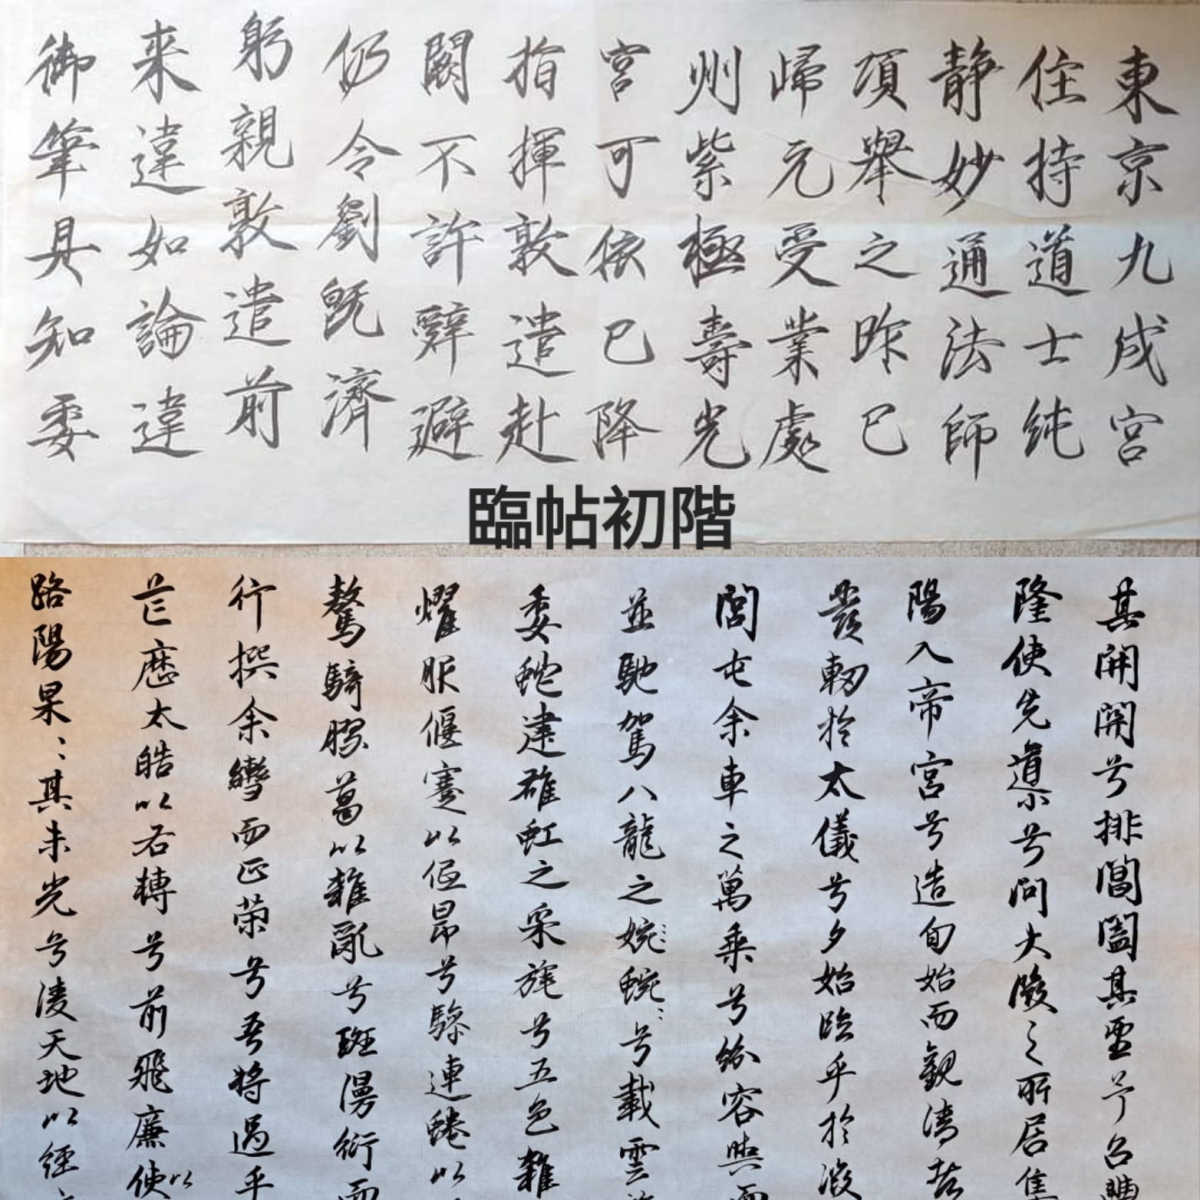 東京九成宮
住持道士純
静妙通法師
項舉之昨已
歸元受業處
州紫極壽光
宮可依已降
指揮敦遣赴
闕不許辭避
仍令劉既濟
躬親敦遣前
来違如論違
御筆具知委
臨帖初階
其開關兮排閶闔其望予召豐
隆使先導兮问大微之所居集
陽入帝宮兮造旬始而觀清都
發軔於太儀兮夕始臨乎於微
閭屯余車之萬乘兮紛容與而
並馳駕八龍之婉婉兮載雲
委蛇建雄虹之采旄兮五色雜
耀服偃蹇以低昂兮驂連蜷以
驁騎膠葛以雜亂兮斑漫衍而
行撰余轡而正策兮吾將過乎
芒歷太皓以右轉兮前飛廉使以
路陽杲杲其未光兮凌天地以徑